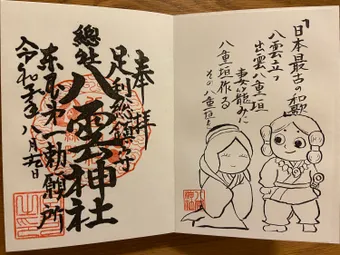 「日本最古の和歌」
八雲立つ
出雲八重垣
妻籠みに
八重垣作る
その八重垣を
奉拝
足利総鎮守
總社八雲神社
第一勅願所
令和 年八月 日